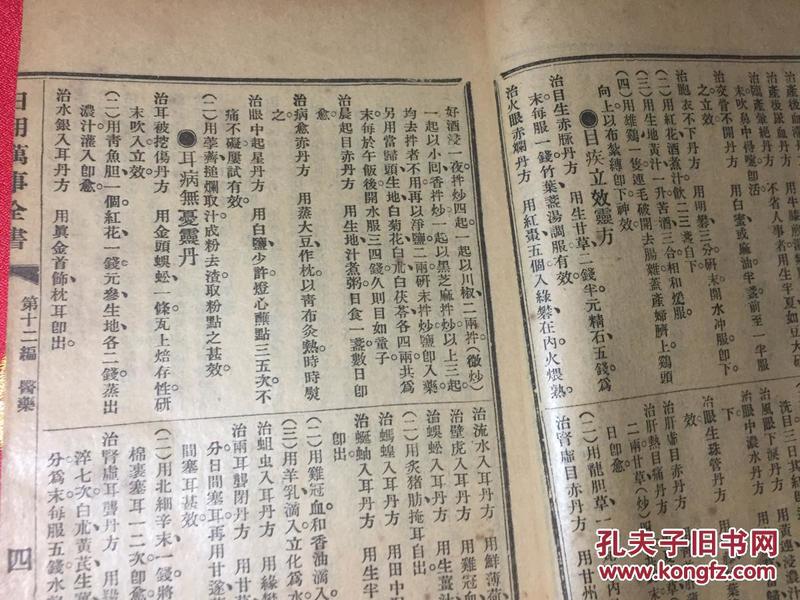 治產後尿血丹方　用牛膝
治臨產暈絕丹方　不省人事者用生半夏如豆大
末吹鼻中得嚏卽活
治交骨不開丹方　用白蜜或麻油半盞前至一半服
之立效
治胞衣不下丹方　用明礬三分研末開水冲服卽下
(二)用紅花酒煮汁飲二三盞自下
(三)用生地黃汁一升苦酒三合相和煖服
(四)用雄鷄一隻連毛破開去腸雜蓋產婦臍上鷄頭
向上以布紮縛卽下神效
●目疾立效靈方
治目生赤脈丹方　用生甘草二錢半元精石五錢爲
末每服一錢竹葉盞湯調服有效
治火眼赤爛丹方　用紅棗五個入綠礬在內火煨熟
洗目三日
治風眼下淚丹方
治眼中濃水丹方　用黃連浸濃汁
下
治眼生珠管丹方
效
治肝虛目赤丹方
治肝熱目痛丹方
二兩甘草(炒)四
日卽愈
(二)用龍胆草一
治腎虛目赤丹方　用甘州
好酒浸一夜拌炒四起一起以川椒二兩拌(微炒)
一起以小回香拌炒一起以黑芝麻拌炒以上三起
均去拌者不用再以淨鹽二兩研末拌炒鹽卽入藥
另用當歸頭生地白菊花白朮白茯苓各四兩共爲
末每於午飯後開水服三四錢久則目如童子
治晨起目赤丹方　用生地汁煮粥日食一盞數日卽
愈
治病愈赤丹方　用蒸大豆作枕以靑布灸熱時時熨
之
治眼中起星丹方　用白鹽少許燈心蘸點三五次不
痛不礙屢試有效
(二)用荸薺搥爛取汁成粉去渣取粉點之甚效
●耳病無憂靈丹
治耳被挖傷丹方　用金頭蜈蚣一條瓦上焙存性研
末吹入立效
(二)用靑魚胆一個紅花一錢元參生地各二錢蒸出
濃汁灌入卽愈
治水銀入耳丹方　用眞金首飾枕耳卽出
治流水入耳丹方　用鮮薄荷
治壁虎入耳丹方　用生薑汁
治蜈蚣入耳丹方　用雞冠血
(二)用炙猪肪掩耳自出
治螞蝗入耳丹方　用田中
治蜒蚰入耳丹方　用生半
卽出
(二)用雞冠血和香油滴入
(三)用羊乳滴入立化爲水
治蛆虫入耳丹方　用綠礬
治兩耳聾閉丹方　用甘草
分日間塞耳再用甘遂
間塞耳甚效
(二)用北細辛末一錢將
棉裹塞耳一二次卽愈
治腎虛耳聾丹方　用
淬七次白朮黃芪生薑
分爲末每服五錢水
日用萬事全書
第十二編　醫藥
四
孔夫子旧书网
www.kongfz.com